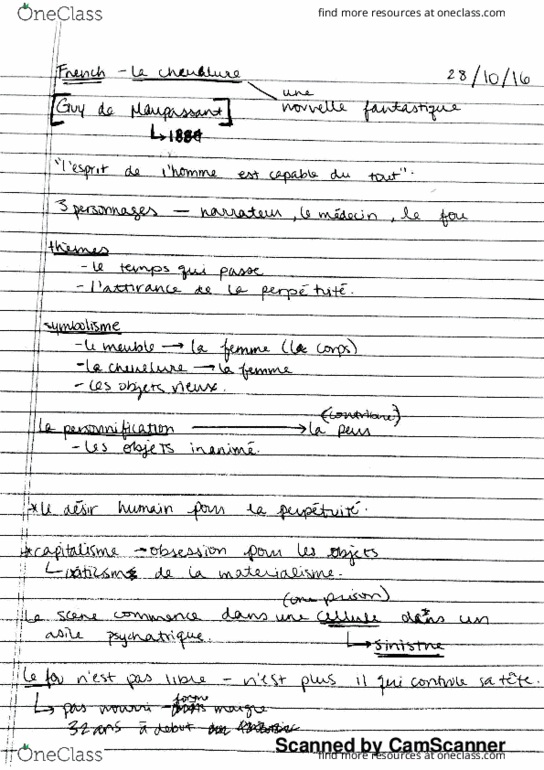 OneClass
find more resources at oneclass.com
French - La chevelure
28/10/16
une
nouvelle fantastique
[Guy de Maupassant]
↳ 1884
"l'esprit de l'homme est capable du tout".
3 personnages - narrateur, le médecin, le fou
themes
- le temps qui passe
- l'attirance de la perpétuité.
symbolisme
- le meuble → la femme (le corps)
- la chevelure → la femme
- les objets vieux.
(contraire)
la personnification → la peur
- les objets inanimé.
* le désir humain pour la perpétuité.
* capitalisme - obsession pour les objets
↳ de la materialisme.
(une prison)
La scene commence dans une cellule dans un
asile psychatrique.
↳ sinistre
Le fou n'est pas libre - n'est plus il qui controle sa tête.
↳ pas nourri - maigre
32 ans à debut
Scanned by CamScanner
OneClass
find more resources at oneclass.com